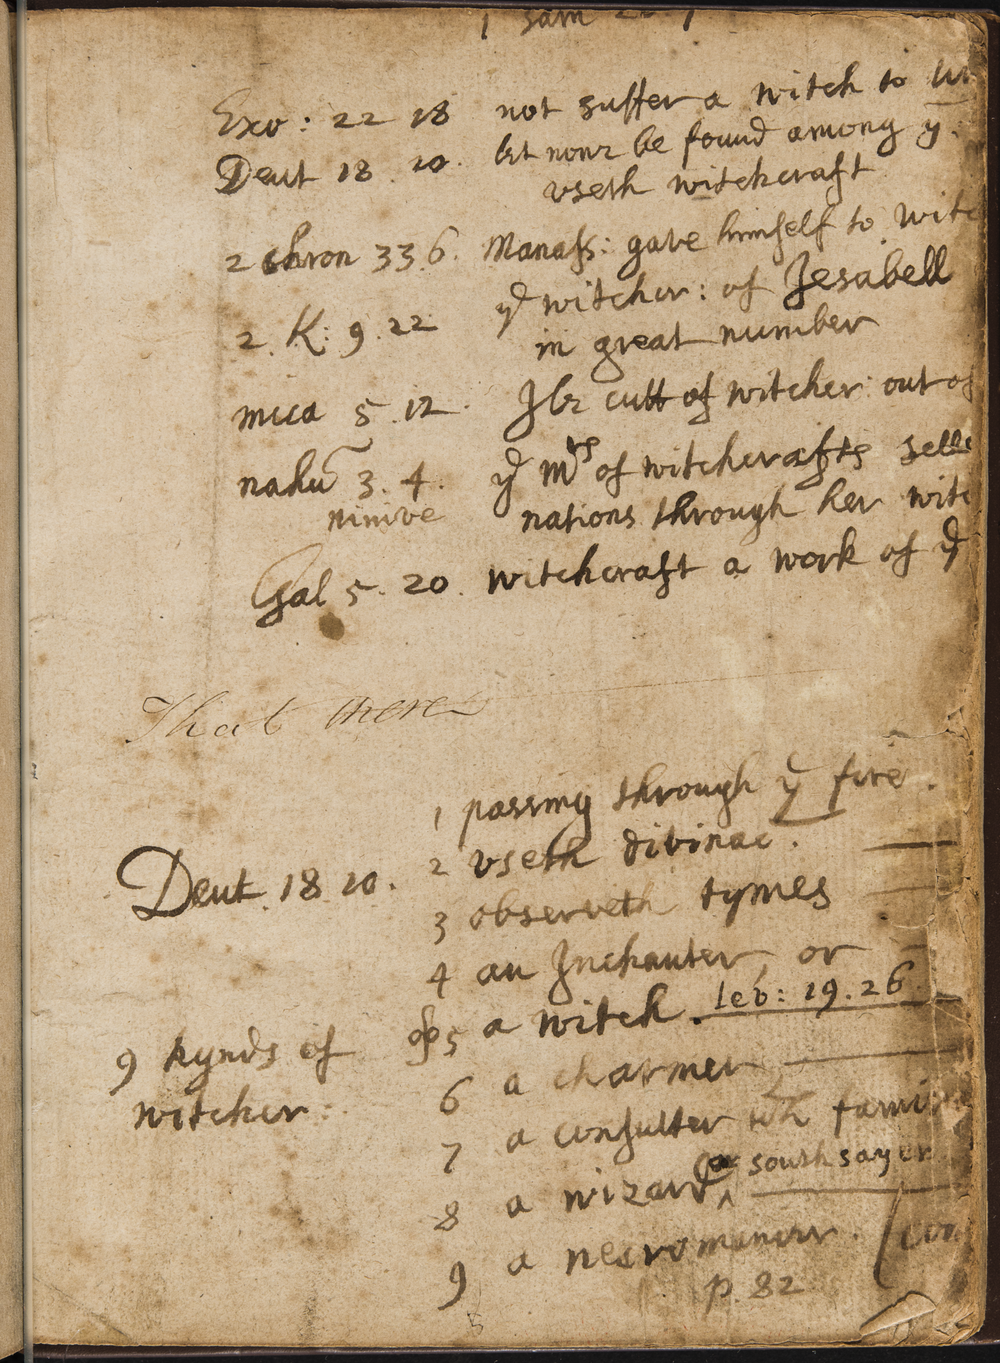 1 Sam
Exo: 22 18 not suffer a witch to
Deut 18 10. let none be found among y
vseth witchcraft
2 Chron 33 6. Manass: gave himself to witc
2. K: 9. 22 yᵉ witcher: of Jesabell
in great number
mica 5. 12. Ile cutt of witcher: out of
nahū 3. 4. yᵉ Mʳˢ of witchcrafts selle
ninive nations through her witc
Gal 5. 20. witchcraft a work of yᵉ
That there
1 passing through yᵉ fire.
Deut. 18 10. 2 vseth divinac.
3 observeth tymes
4 an Inchanter, or
9 kynds of 5 a witch. Lev: 19. 26.
witcher: 6 a charmer
7 a consulter wth famili
8 a wizard ^ or southsayer
9 a necromancer.
p. 82